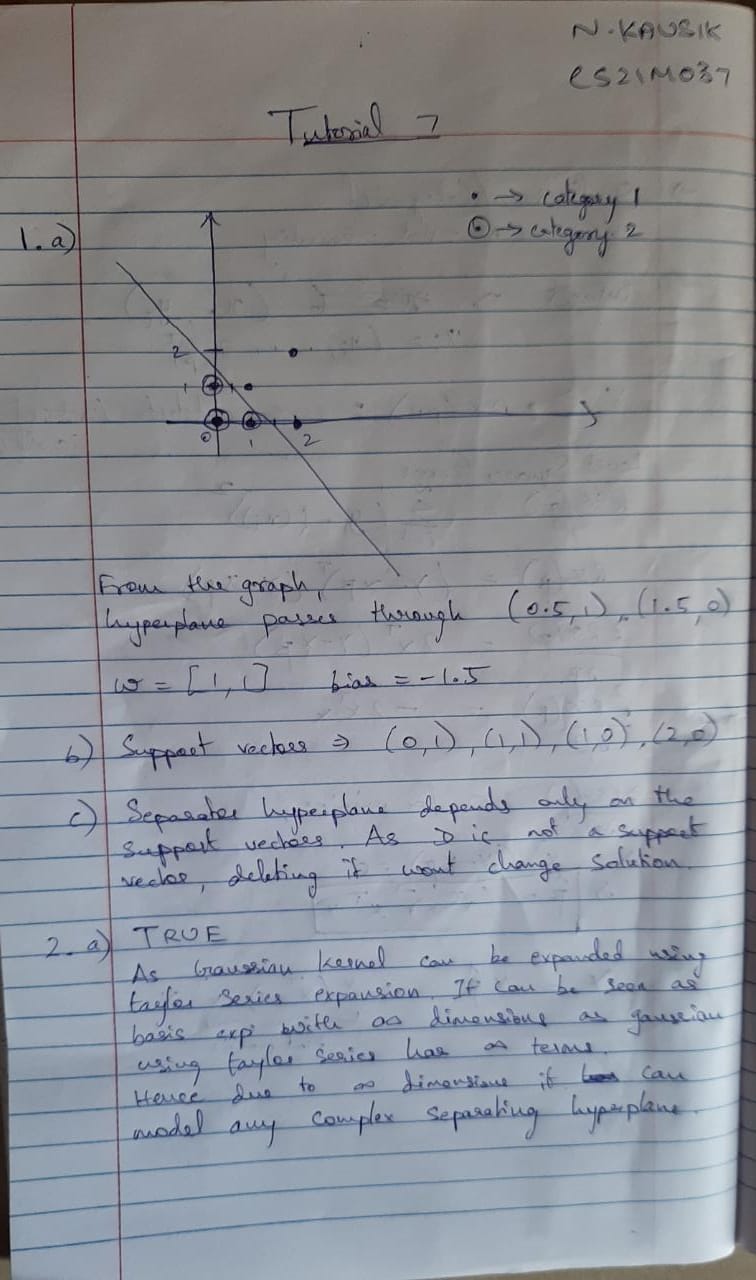 N. KAUSIK
CS21M037
Tutorial 7
. → category 1
⊙ → category 2
1. a)
2
1
0 1 2
From the graph,
hyperplane passes through (0.5, 1), (1.5, 0)
w = [1, 1] bias = -1.5
b) Support vectors ⇒ (0,1), (1,1), (1,0), (2,0)
c) Separates hyperplane depends only on the
support vectors. As D is not a support
vector, deleting it wont change solution.
2. a) TRUE
As Gaussian Kernel can be expanded using
taylor series expansion. It can be seen as
basis exp with ∞ dimensions as gaussian
using taylor series has ∞ terms.
Hence due to ∞ dimensions it can
model any complex separating hyperplane.